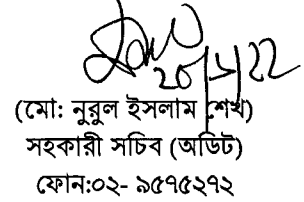 (মো: নুরুল ইসলাম শেখ)
সহকারী সচিব (অডিট)
ফোন:০২- ৯৫৭৫২৭২